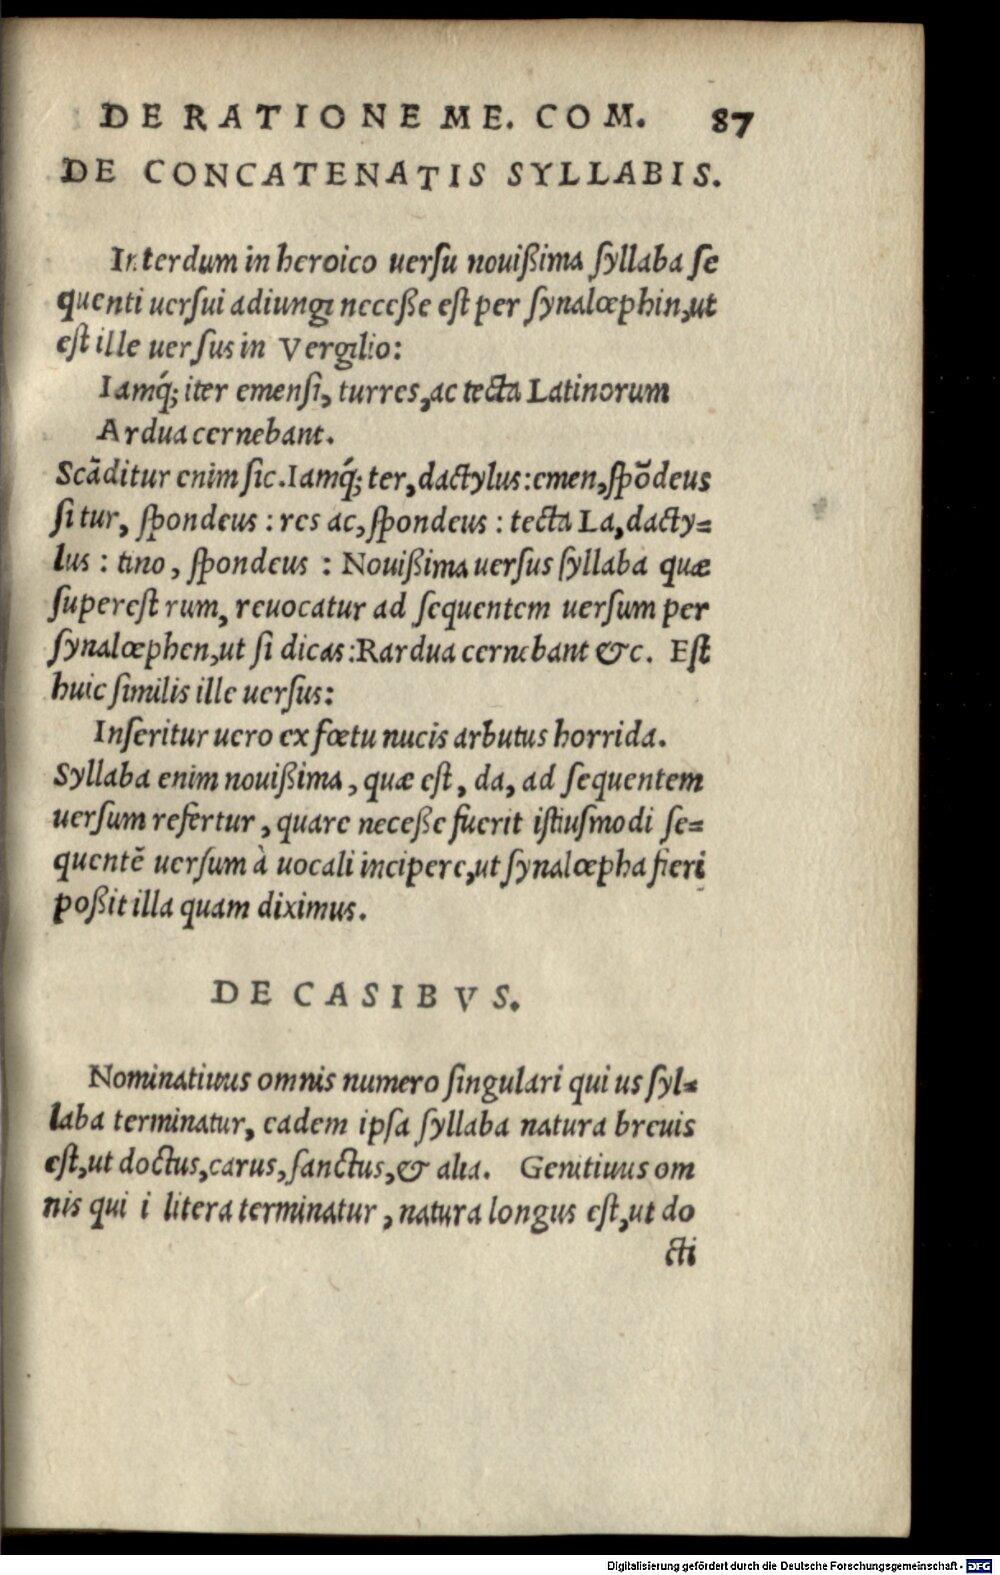 DE RATIONE ME. COM. 87
DE CONCATENATIS SYLLABIS.
Interdum in heroico uerſu nouißima ſyllaba ſe
quenti uerſui adiungi neceße eſt per ſynalœphin, ut
eſt ille uerſus in Vergilio:
Iamq́; iter emenſi, turres, ac tecta Latinorum
Ardua cernebant.
Scāditur enim ſic. Iamq́; ter, dactylus: emen, ſpōdeus
ſi tur, ſpondeus: res ac, ſpondeus: tecta La, dacty=
lus: tino, ſpondeus: Nouißima uerſus ſyllaba quæ
ſupereſt rum, reuocatur ad ſequentem uerſum per
ſynalœphen, ut ſi dicas: Rardua cernebant &c. Eſt
huic ſimilis ille uerſus:
Inſeritur uero ex fœtu nucis arbutus horrida.
Syllaba enim nouißima, quæ eſt, da, ad ſequentem
uerſum refertur, quare neceße fuerit iſtiuſmodi ſe=
quentē uerſum à uocali incipere, ut ſynalœpha fieri
poßit illa quam diximus.
DE CASIBVS.
Nominatiuus omnis numero ſingulari qui us ſyl=
laba terminatur, eadem ipſa ſyllaba natura breuis
eſt, ut doctus, carus, ſanctus, & alia. Genitiuus om
nis qui i litera terminatur, natura longus eſt, ut do
cti
Digitalisierung gefördert durch die Deutsche Forschungsgemeinschaft - DFG